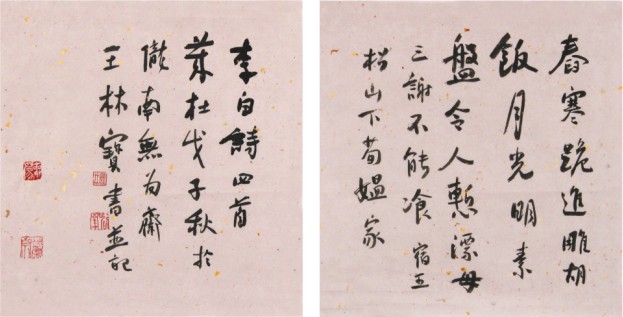 舂寒跪進雕胡
飯月光明素
盤令人慙漂母
三謝不能飡宿五
松山下荀媪家
李白詩四首
歲在戊子秋於
南無為齋
王林寶書並記